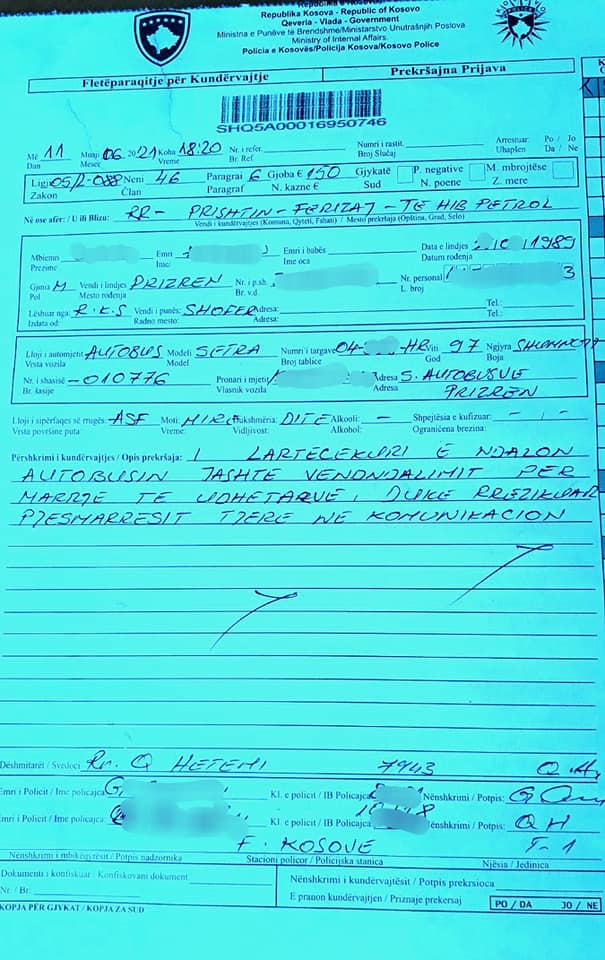 Republika Kosova - Republic of Kosovo
Qeveria - Vlada - Government
Ministria e Punëve të Brendshme/Ministarstvo Unutrašnjih Poslova
Ministry of Internal Affairs.
Policia e Kosovës/Policija Kosova/Kosovo Police
Fletëparaqitje për Kundërvajtje Prekršajna Prijava
SHQ5A00016950746
Më 11 Muaji 06 2021 Koha 18:20 Nr. i refer. Numri i rastit. Arrestuar: Po / Jo
Dan Mesec Vreme Br. Ref. Broj Slučaj Uhapšen Da / Ne
Ligji 05/L-088 Neni 46 Paragrafi 6 Gjoba € 150 Gjykatë P. negative M. mbrojtëse
Zakon Član Paragraf N. kazne € Sud N. poene Z. mere
Në ose afër: / U ili Blizu: RR- PRISHTIN- FERIZAJ - TE HIB PETROL
Vendi i kundërvajtjes (Komuna, Qyteti, Fshati) / Mesto prekršaja (Opština, Grad, Selo)
Mbiemri Emri Emri i babës Data e lindjes 1989
Prezime Ime Ime oca Datum rođenja
Gjinia M Vendi i lindjes PRIZREN Nr. i p.sh. Nr. personal 3
Pol Mesto rođenja Br. v.d. L. broj
Lëshuar nga: R.K.S Vendi i punës: SHOFER Adresa: Tel.:
Izdata od: Radno mesto: Adresa: Tel.:
Lloji i automjetit AUTOBUS Modeli SETRA Numri i targave 04- -HR Viti 97 Ngjyra
Vrsta vozila Model Broj tablice God Boja
Nr. i shasisë -010776 Pronari i mjetit Adresa S. AUTOBUSVE
Br. šasije Vlasnik vozila Adresa PRIZREN
Lloji i sipërfaqes së rrugës: ASF Moti: MIRË Dukshmëria: DITE Alkooli: - Shpejtësia e kufizuar: - / -
Vrsta površine puta: Vreme: Vidljivost: Alkohol: Ograničena brzina:
Përshkrimi i kundërvajtjes / Opis prekršaja: I LARTECEKURI E NDALON
AUTOBUSIN JASHTE VENDNDALIMIT PER
MARRJE TE UDHETARVE, DUKE RREZIKUAR
PJESMARRESIT TJERE NE KOMUNIKACION
Dëshmitarët / Svedoci Rr. Q HETEMI 7943 Q.H,
Emri i Policit / Ime policajca G Kl. e policit / IB Policajca Nënshkrimi / Potpis:
Emri i Policit / Ime policajca Kl. e policit / IB Policajca Nënshkrimi / Potpis: QH
F. KOSOVË T-1
Nënshkrimi i mbikëqyrësit / Potpis nadzornika Stacioni policor / Policijska stanica Njësia / Jedinica
Dokumenti i konfiskuar / Konfiskovani dokument Nënshkrimi i kundërvajtësit / Potpis prekrsioca
Nr. / Br.
E pranon kundërvajtjen / Priznaje prekersaj PO / DA JO / NE
KOPJA PËR GJYKAT / KOPJA ZA SUD